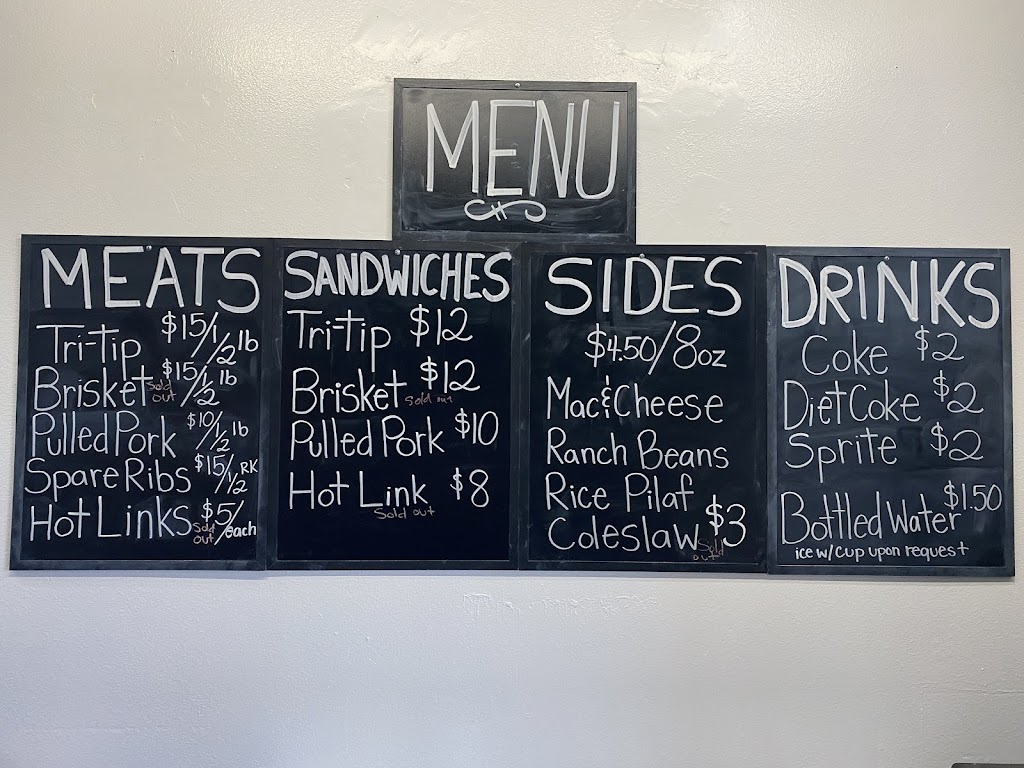 MENU
MEATS
Tri-Tip $15/1/2 lb
Brisket sold out $15/1/2 lb
Pulled Pork $10/1/2 lb
Spare Ribs $15/1/2 RK
Hot Links sold out $5/each
SANDWICHES
Tri-tip $12
Brisket $12
sold out
Pulled Pork $10
Hot Link $8
Sold out
SIDES
$4.50/8oz
Mac & Cheese
Ranch Beans
Rice Pilaf
Coleslaw $3
Sold out
DRINKS
Coke $2
Diet Coke $2
Sprite $2
Bottled Water $1.50
ice w/cup upon request